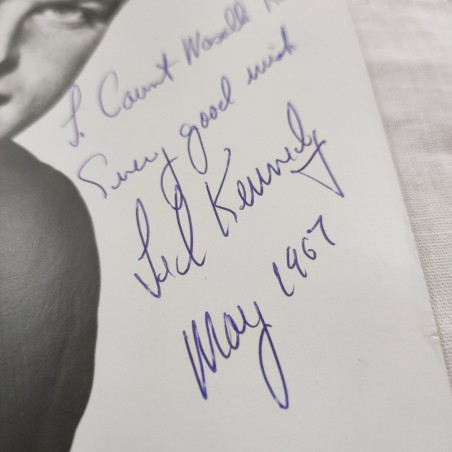 To Count
Every good wish
Ted Kennedy
May 1967